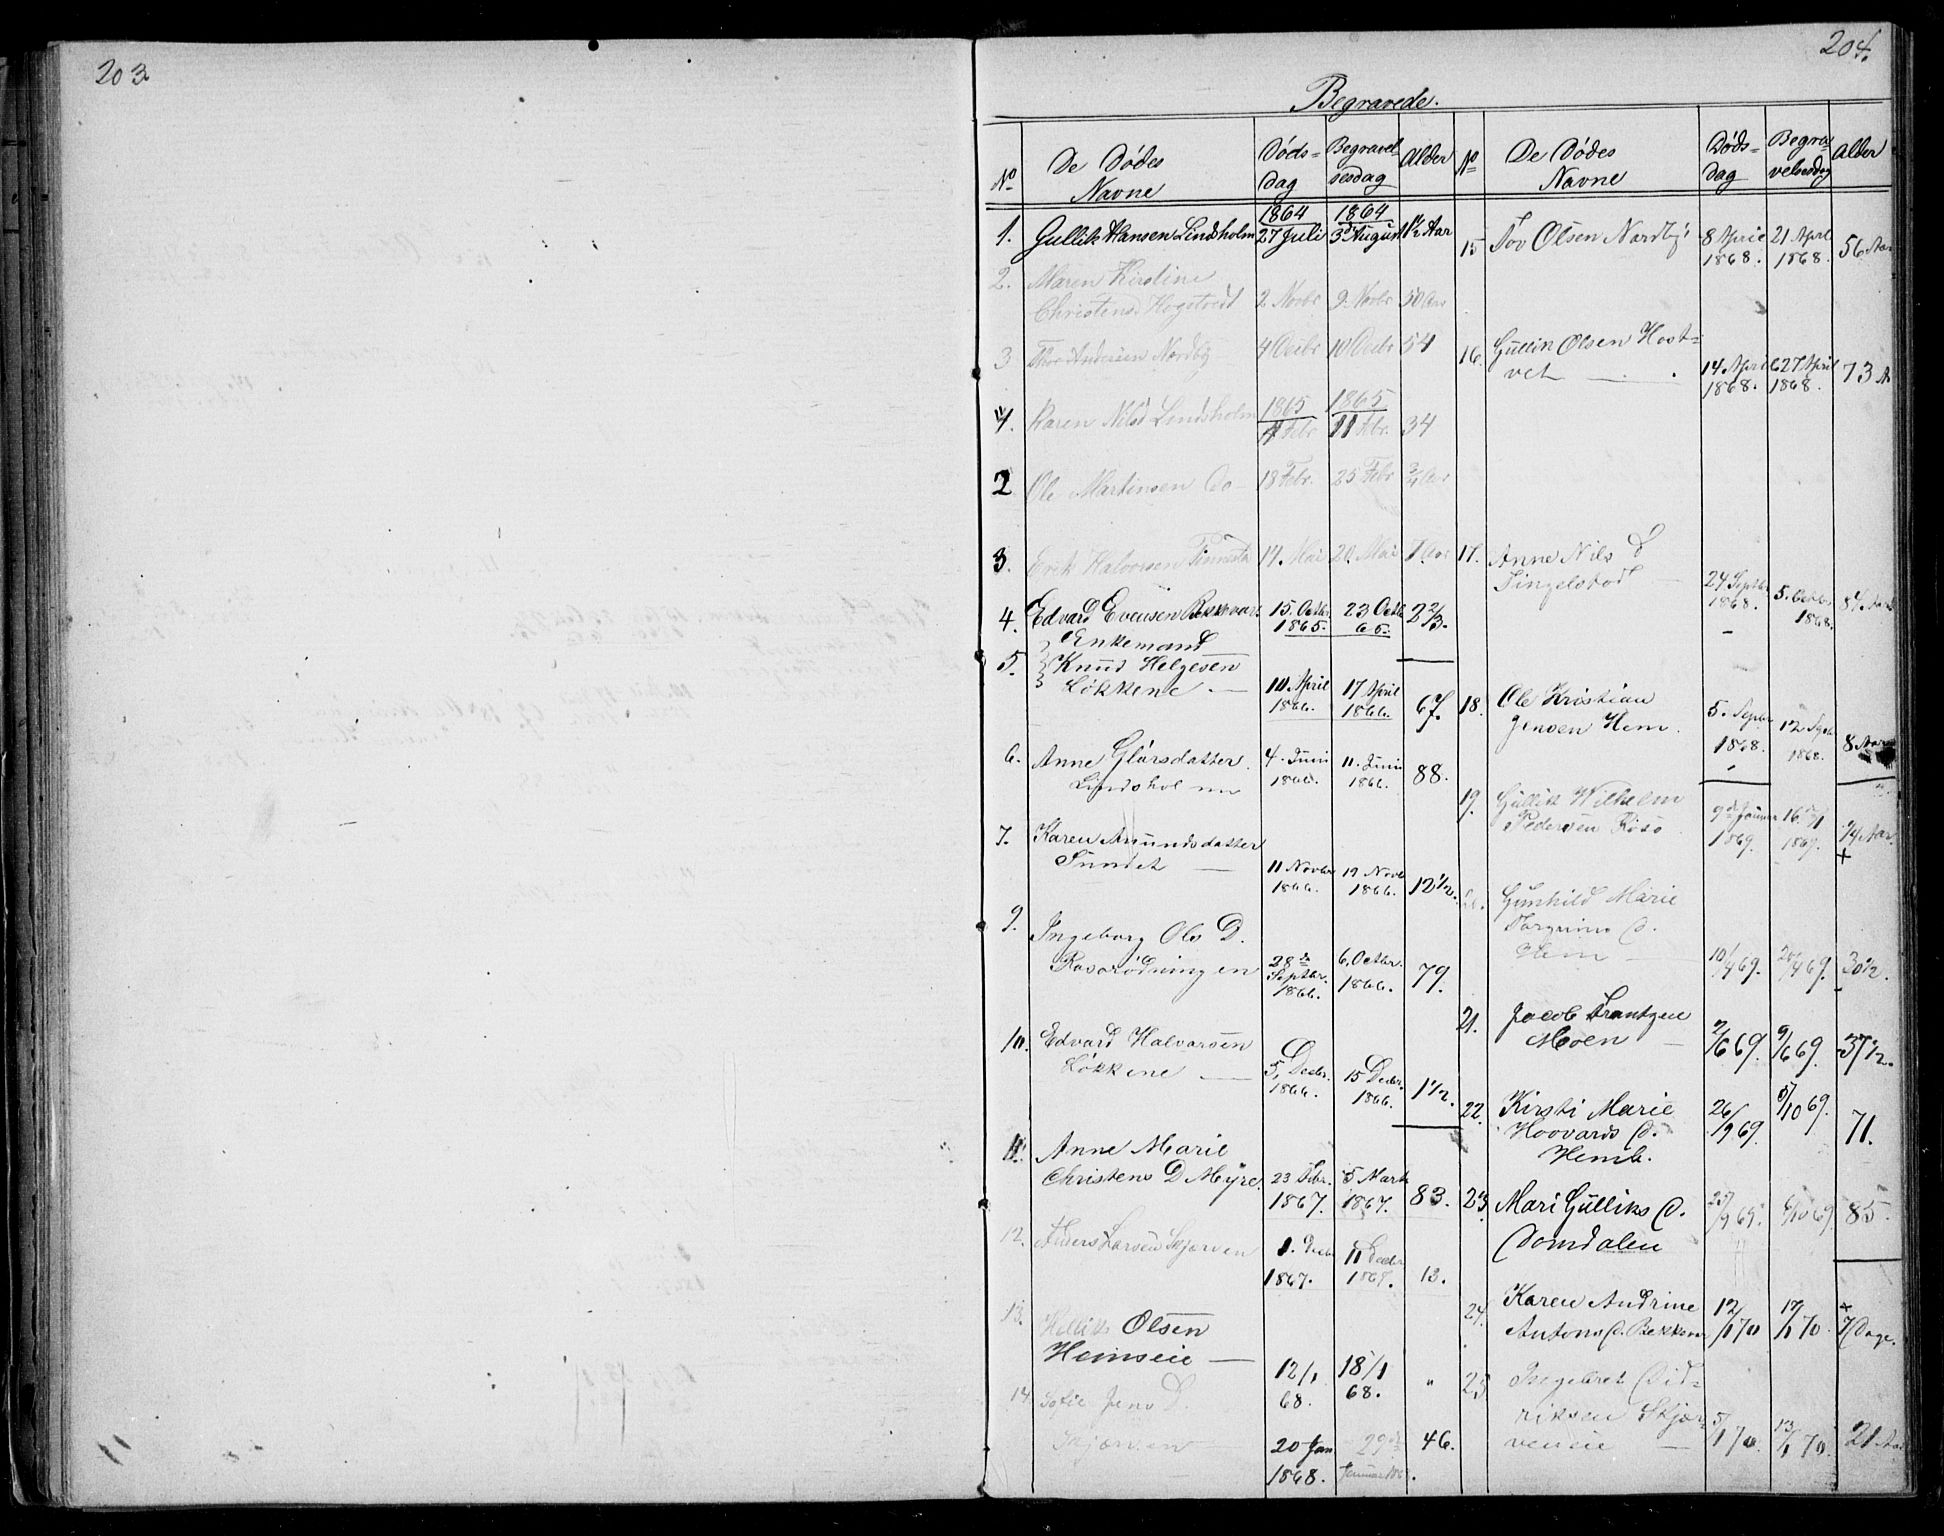 203
204.
Begravede.
No De Dödes Navne Döds-Dag Begravelsesdag Alder
1864 1864
1. Gullik Hansen Lindsholm 27 Juli 3d August 1½ Aar
2. Maren Kirstine
Christensd Hogstvedt 2 Novbr 9. Novbr 50 Aar
3 Thor Andersen Nordby 4 Decbr 10 Decbr 54
1865 1865
1. Karen Nilsd Lindsholm 4 Febr 11 Febr. 34
2 Ole Martinsen Do 18 Febr. 25 Febr ¾ Aar
3. Erik Halvorsen 14. Mai 20. Mai 7. Aar
4. Edvard Evensen Bekkevar. 15. Octbr 1865. 23 Octb 65. 2 2/3.
5. Enkemand
Knud Helgesen
Lökkene 10. April 1866. 17 April 1866. 67.
6. Anne Glörsdatter
Lindsholmm 4. Juni 1866. 11. Juni 1866. 88.
7. Karen Amundsdatter
Sundet 11 Novbr 1866. 19 Novb 1866. 12½.
9. Ingeborg Ols D.
Ravarödningen 28de Septbr. 1866. 6. Octbr. 1866. 79.
10. Edvard Halvorsen
Lökkene 5. Decbr. 1866. 15 Decbr. 1866. 1½.
11. Anne Marie
Christens D Myre. 23 Febr. 1867. 5 Marts 1867. 83.
12. Anders Larsen Skjörven 1. Decbr 1867. 11 Decbr 1867. 13.
13. Hellik Olsen
Hemseie 12/1 68. 18/1 68. "
14. Sofie Jens D.
Skjörven 20 Jan 1868. 29de Januar 46.
No De Dödes Navne Döds-Dag Begravelsesdag Alder
15 Tov Olsen Nordby 8 April 1868. 21 April 1868. 56 Aar
16. Gullik Olsen Hostvet 14 April 1868. 27 April 1868. 73 A
17. Anne Nils D
Tingelstad 24 Septbr 1868. 5. Octbr. 1868. 84 Aar
18. Ole Kristian
Jensen Hem. 5. Septbr 1868. 12 Septb 1868. 8 Aar
19. Gullik Wilhelm
Pedersen 9de Januar 1869. 16/1 1869. ¾ Aar.
20. Gunhild Marie
Torgrims D.
Hem 10/4 69. 20/4 69. 30½.
21. Jacob Frantzen
Moen 2/6 69. 9/6 69. 37½.
22. Kirsti Marie
Hoovards D.
Hemb. 26/9 69. 5/10 69. 71.
23. Mari Gulliks D.
Domdalen 25/9 69. 6/10 69. 85.
24. Karen Andrine
Antons D. Bekkevar 12/1 70 19/1 70. 7 Dage.
25 Ingebret Didriksen Skjörveneie 5/1 70. 13/1 70. 21 Aar